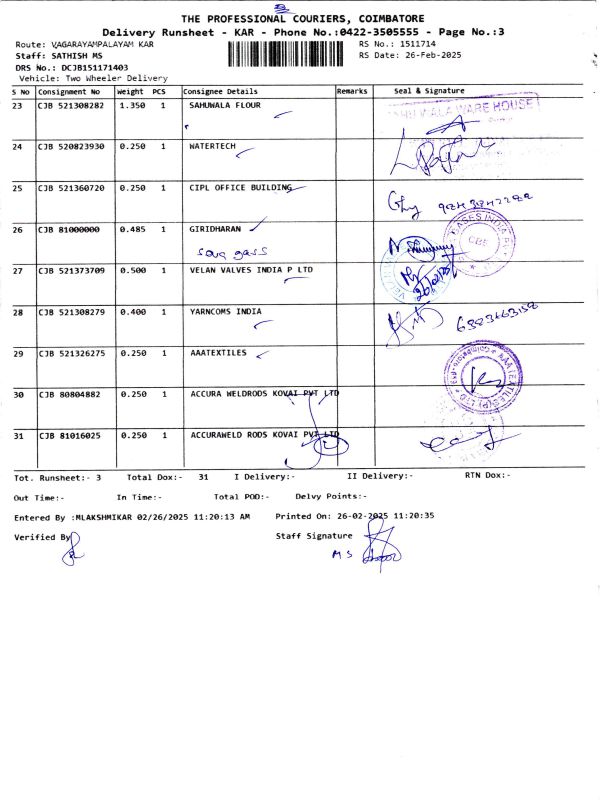 THE PROFESSIONAL COURIERS, COIMBATORE
Delivery Runsheet - KAR - Phone No.:0422-3505555 - Page No.:3
Route: VAGARAYAMPALAYAM KAR
RS No.: 1511714
Staff: SATHISH MS
RS Date: 26-Feb-2025
DRS No.: DCJB151171403
Vehicle: Two Wheeler Delivery
S No Consignment No Weight PCS Consignee Details Remarks Seal & Signature
23 CJB 521308282 1.350 1 SAHUWALA FLOUR
WARE HOUSE
24 CJB 520823930 0.250 1 WATERTECH
25 CJB 521360720 0.250 1 CIPL OFFICE BUILDING
26 CJB 81000000 0.485 1 GIRIDHARAN
GASES INDIA
CBE
27 CJB 521373709 0.500 1 VELAN VALVES INDIA P LTD
28 CJB 521308279 0.400 1 YARNCOMS INDIA
6383663158
29 CJB 521326275 0.250 1 AAATEXTILES
AAA TEXTILES (P) LTD
30 CJB 80804882 0.250 1 ACCURA WELDRODS KOVAI PVT LTD
31 CJB 81016025 0.250 1 ACCURAWELD RODS KOVAI PVT LTD
Tot. Runsheet:- 3 Total Dox:- 31 I Delivery:- II Delivery:- RTN Dox:-
Out Time:- In Time:- Total POD:- Delvy Points:-
Entered By :MLAKSHMIKAR 02/26/2025 11:20:13 AM Printed On: 26-02-2025 11:20:35
Verified By
Staff Signature
M S